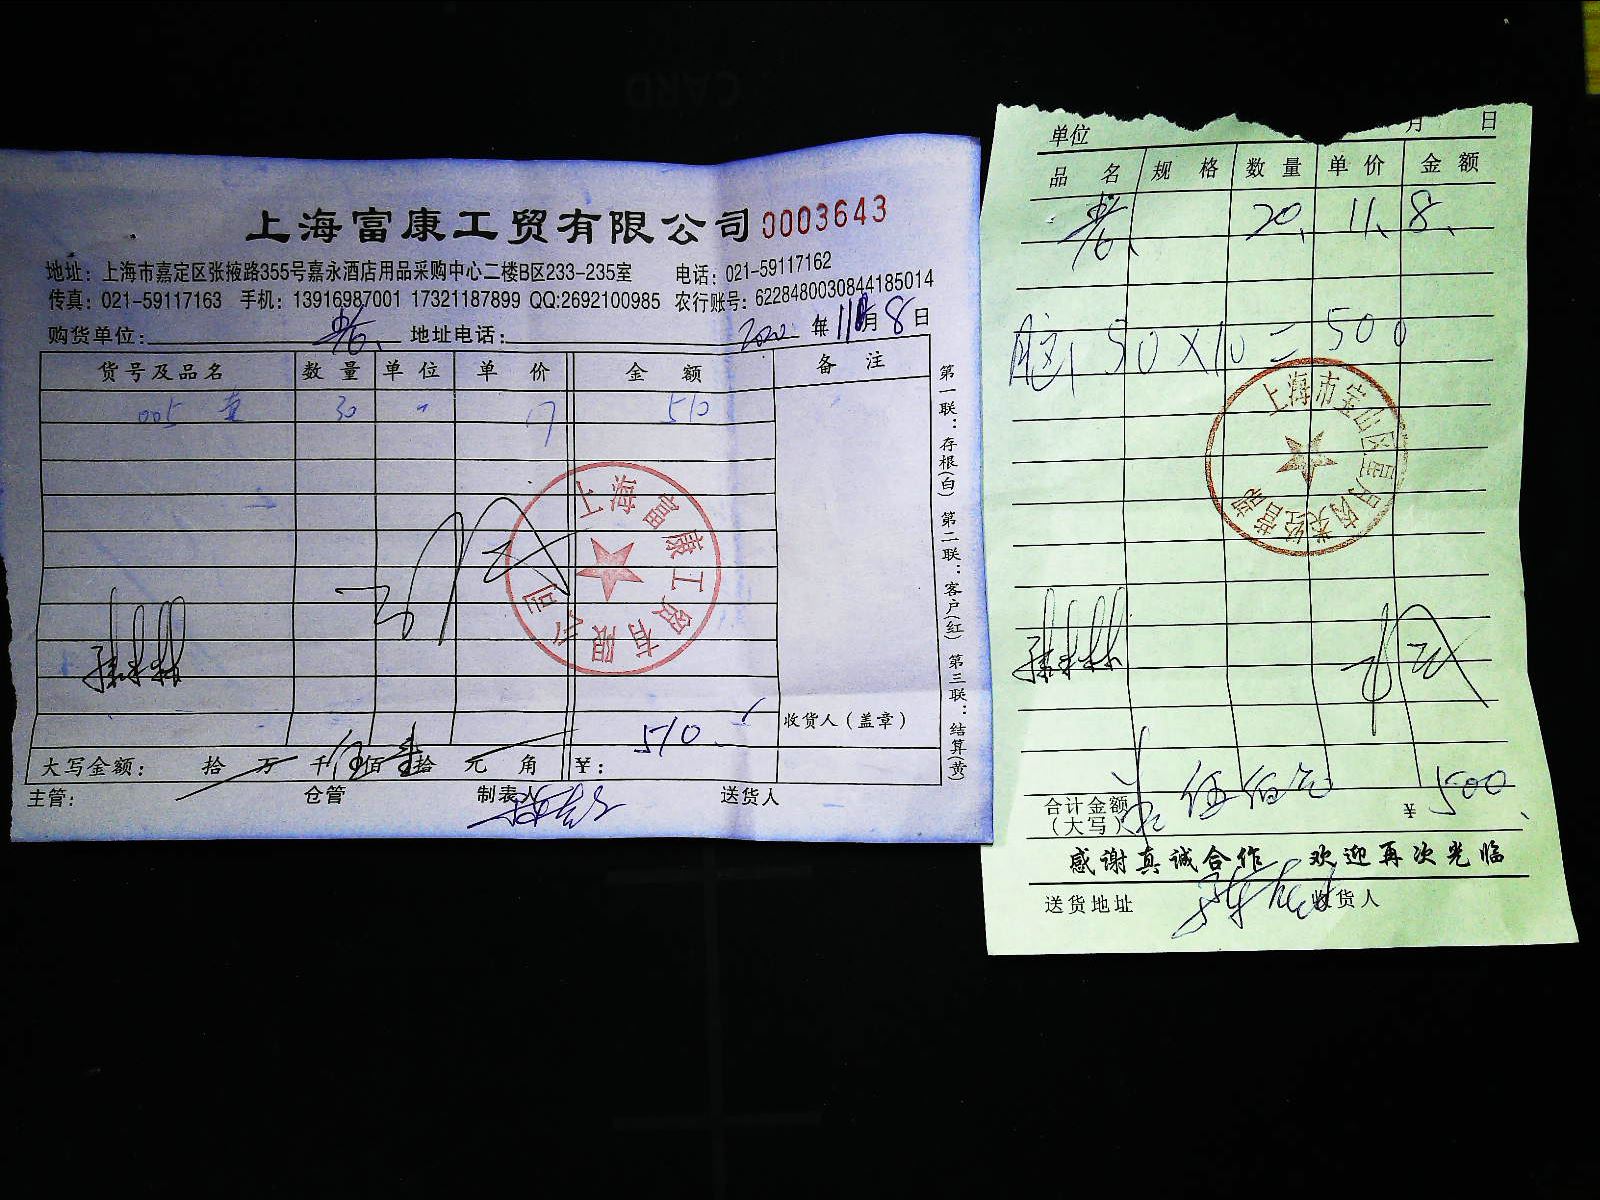 CARD
上海富康工贸有限公司 0003643
地址：上海市嘉定区张掖路355号嘉永酒店用品采购中心二楼B区233-235室 电话：021-59117162
传真：021-59117163 手机：13916987001 17321187899 QQ:2692100985 农行账号：6228480030844185014
购货单位： 地址电话： 年 11月8日
货号及品名 数量 单位 单价 金额 备注
005 30 17 510
上海富康工贸有限公司
510
收货人（盖章）
大写金额： 拾 万 千 伍佰 壹拾 元 角 ￥：
主管： 仓管 制表人 送货人
第一联：存根(白) 第二联：客户(红) 第三联：结算(黄)
单位 月 日
品名 规格 数量 单价 金额
20、 11、 8、
50×10=500
上海市宝山区
经营部
合计金额（大写） 伍佰元 ￥ 500
感谢真诚合作 欢迎再次光临
送货地址 收货人